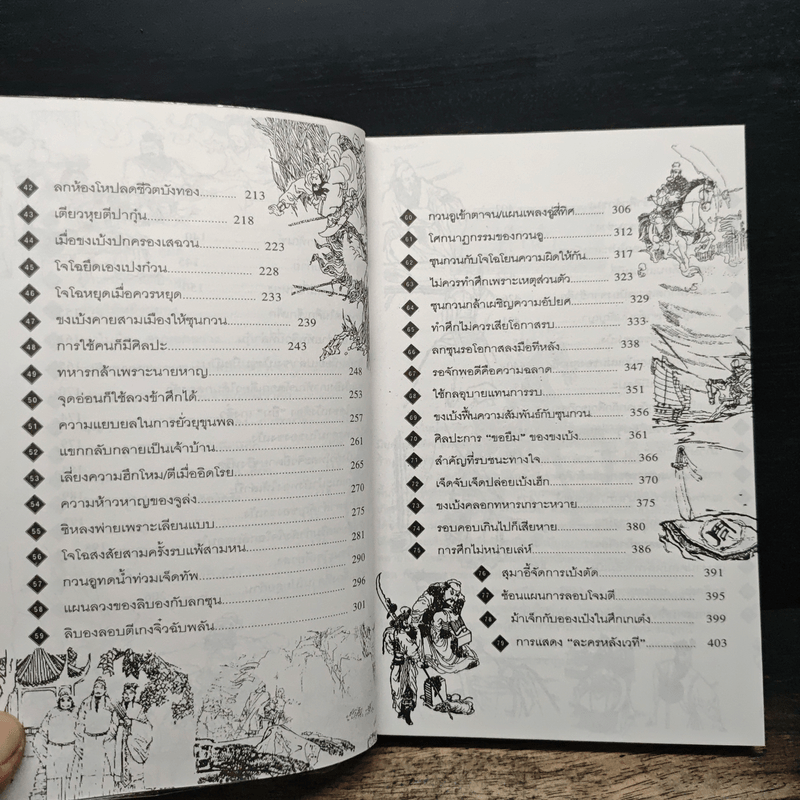 42 ลกห้องโหปลดชีวิตบังทอง.......... 213
43 เตียวหุยตีปากุ๋น.......... 218
44 เมื่อขงเบ้งปกครองเสฉวน.......... 223
45 โจโฉยึดเองเปงก๋วน.......... 228
46 โจโฉหยุดเมื่อควรหยุด.......... 233
47 ขงเบ้งคายสามเมืองให้ซุนกวน.......... 239
48 การใช้คนก็มีศิลปะ.......... 243
49 ทหารกล้าเพราะนายหาญ.......... 248
50 จุดอ่อนก็ใช้ลวงข้าศึกได้.......... 253
51 ความแยบยลในการยั่วยุขุนพล.......... 257
52 แขกกลับกลายเป็นเจ้าบ้าน.......... 261
53 เลี่ยงความฮึกโหม/ตีเมื่ออิดโรย.......... 265
54 ความห้าวหาญของจูล่ง.......... 270
55 ซิหลงพ่ายเพราะเลียนแบบ.......... 275
56 โจโฉสงสัยสามครั้งรบแพ้สามหน.......... 281
57 กวนอูทดน้ำท่วมเจ็ดทัพ.......... 290
58 แผนลวงของลิบองกับลกซุน.......... 296
59 ลิบองลอบตีเกงจิ๋วฉับพลัน.......... 301
60 กวนอูเข้าตาจน/แผนเพลงอู่สี่ทิศ.......... 306
61 โศกนาฏกรรมของกวนอู.......... 312
62 ซุนกวนกับโจโฉโยนความผิดให้กัน.......... 317
63 ไม่ควรทำศึกเพราะเหตุส่วนตัว.......... 323
64 ซุนกวนกล้าเผชิญความอัปยศ.......... 329
65 ทำศึกไม่ควรเสียโอกาสรบ.......... 333
66 ลกซุนรอโอกาสลงมือทีหลัง.......... 338
67 รอจักพอดีคือความฉลาด.......... 347
68 ใช้กลอุบายแทนการรบ.......... 351
69 ขงเบ้งฟื้นความสัมพันธ์กับซุนกวน.......... 356
70 ศิลปะการ “ขอยืม” ของขงเบ้ง.......... 361
71 สำคัญที่รบชนะทางใจ.......... 366
72 เจ็ดจับเจ็ดปล่อยเบ้งเฮ็ก.......... 370
73 ขงเบ้งคลอกทหารเกราะหวาย.......... 375
74 รอบคอบเกินไปก็เสียหาย.......... 380
75 การศึกไม่หน่ายเล่ห์.......... 386
76 สุมาอี้จัดการเบ้งตัด.......... 391
77 ซ้อนแผนการลอบโจมตี.......... 395
78 ม้าเจ็กกับอองเป๋งในศึกเกเต๋ง.......... 399
79 การแสดง “ละครหลังเวที”.......... 403